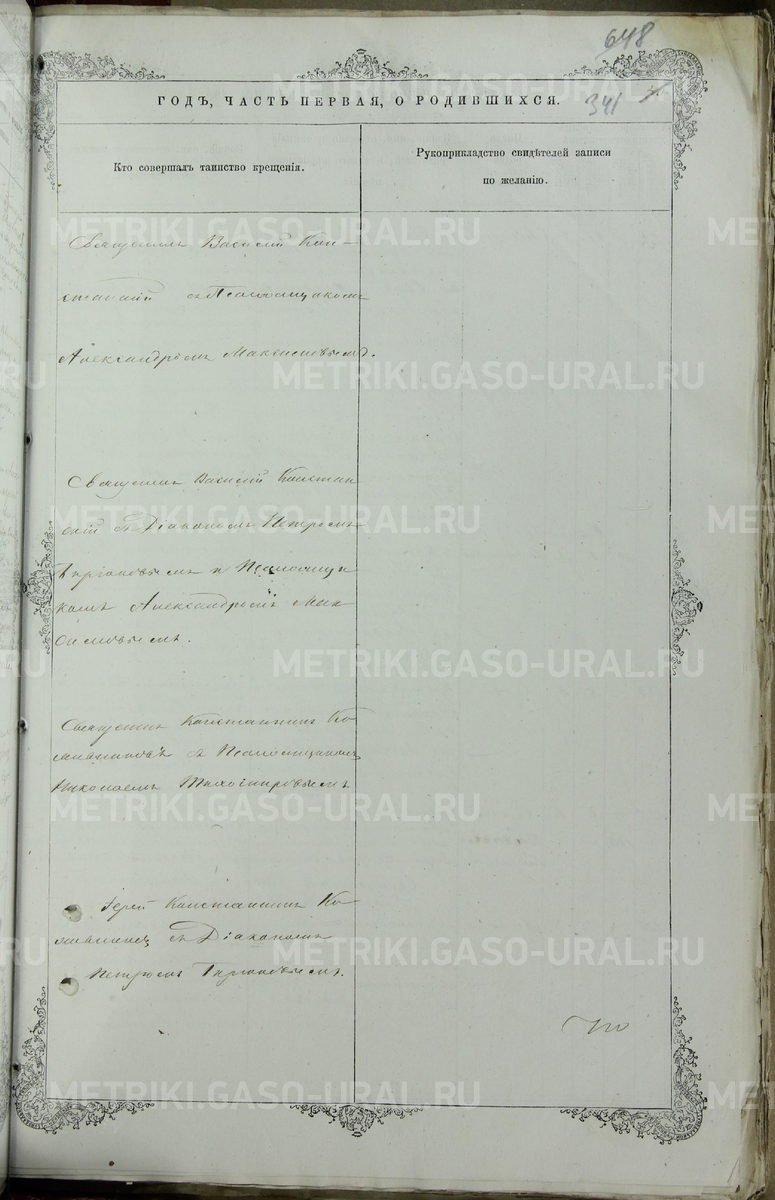 648
ГОДЪ, ЧАСТЬ ПЕРВАЯ, О РОДИВШИХСЯ.
341
Кто совершалъ таинство крещенія.
Рукоприкладство свидѣтелей записи
по желанію.
Священникъ Василій
съ Псаломщикомъ
Александромъ Максимовымъ.
Священникъ Василій
скій съ Діакономъ Петромъ
и Псаломщи
комъ Александромъ Мак
симовымъ.
Священникъ Константинъ Ко
съ Псаломщикомъ
Николаемъ Тихоміровымъ
Іерей Константинъ Ко
съ Діакономъ
Петромъ
METRIKI.GASO-URAL.RU